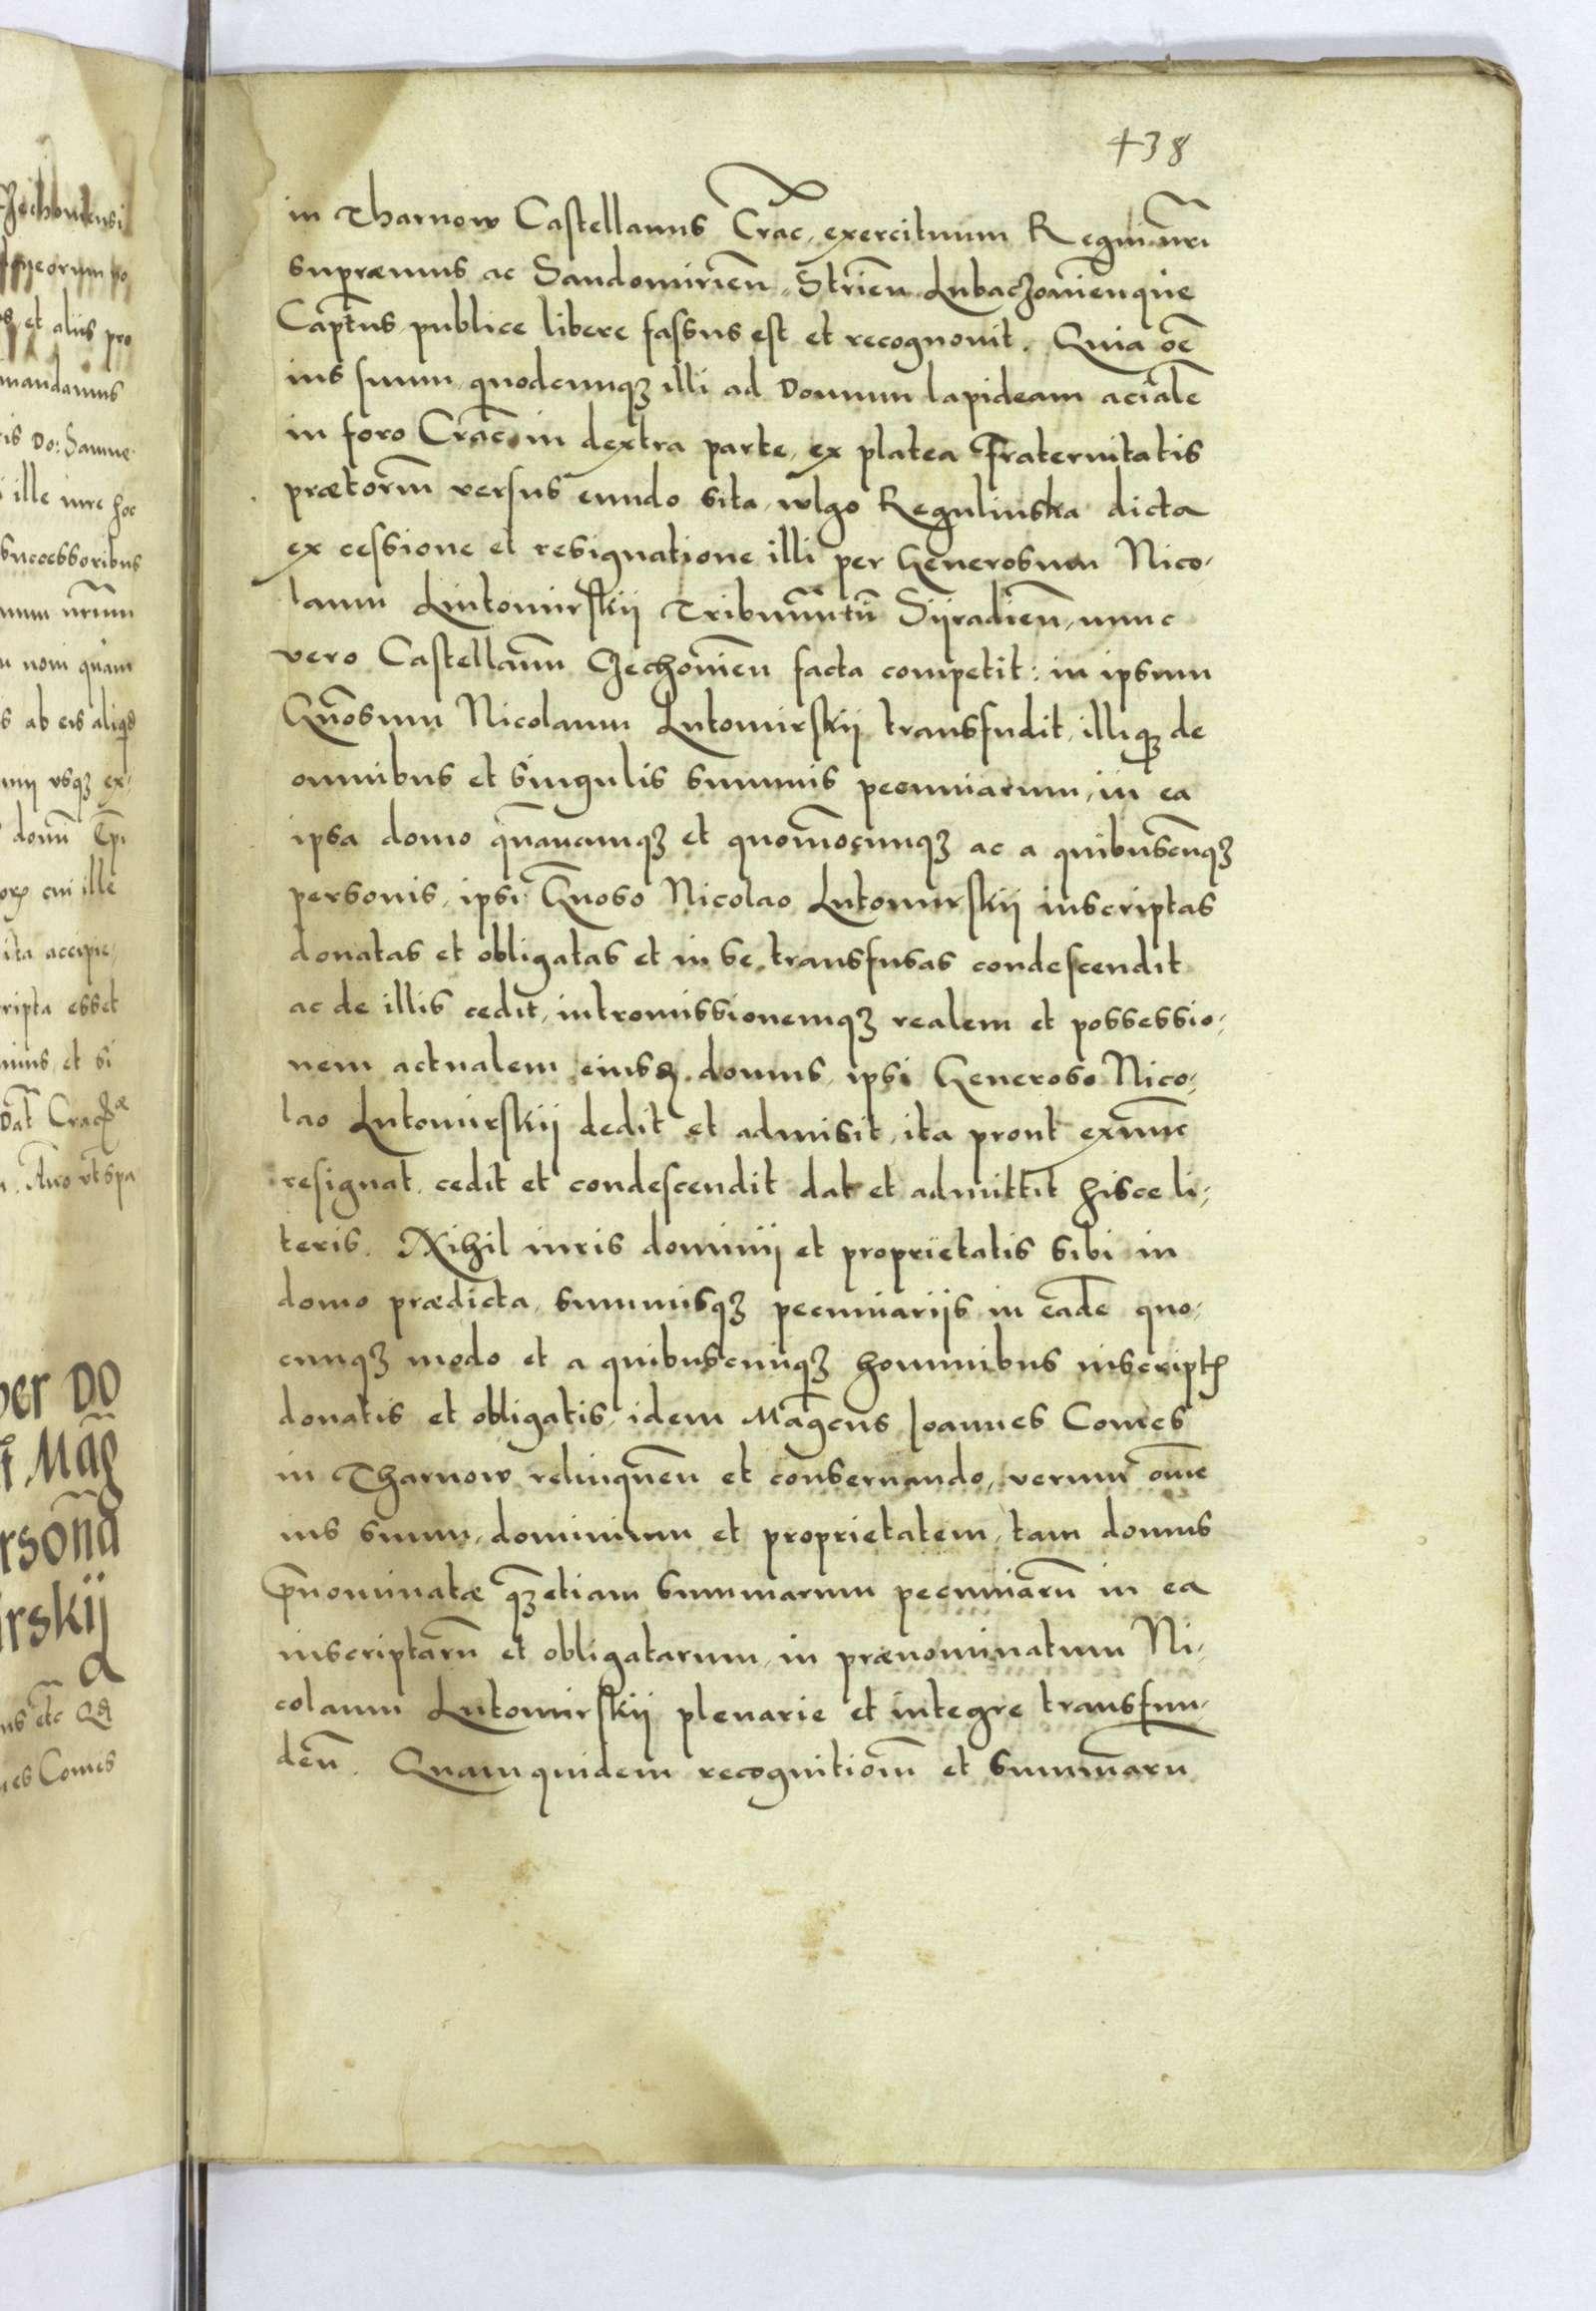 438
in Tharnow Castellanus Crac̄, exercituum Regni nr̄i
supræmus ac Sandomirien̄, Strien̄ Lubaczowien̄que
Capt̄us, publice libere fassus est et recognouit. Quia oē
ius suum, quodcunqꝫ illi ad Domum lapideam aciālē
in foro Crac̄ in dextra parte, ex platea Fraternitatis
prætoriū versus eundo sita, wlgo Regulinska dicta
ex cessione et resignatione illi per Generosum Nico-
laum Lutomirskij Tribunū tū Sijradien̄, nunc
vero Castellanū Czechowien̄ facta competit: in ipsum
Gn̄osum Nicolaum Lutomirskij transfudit, illiqꝫ de
omnibus et singulis summis pecuniarum, in ea
ipsa domo quauamqꝫ et quomōcunqꝫ ac a quibuscūqꝫ
personis, ipsi Gn̄oso Nicolao Lutomirskij inscriptas
donatas et obligatas et in se transfusas condescendit
ac de illis cedit, intromissionemqꝫ realem et possessio-
nem actualem eiusd domus, ipsi Generoso Nico-
lao Lutomirskij dedit et admisit, ita prout exnūc
resignat, cedit et condescendit dat et admittit hisce li-
teris. Nihil iuris dominij et proprietatis sibi in
domo prædicta, summisqꝫ pecuniarijs in eadē quo-
cunqꝫ modo et a quibuscunqꝫ hominibus inscriptꝭ
donatis et obligatis, idem Maḡcus Joannes Comes
in Tharnow relinquen̄ et conseruando, verum om̄e
ius suum, dominium et proprietatem, tam domus
p̄nominatæ qꝫ etiam summarum pecuniarū in ea
inscriptarū et obligatarum, in prænominatum Ni-
colaum Lutomirskij plenarie et integre transfun-
den̄. Quamquidem recognitionē et summarū